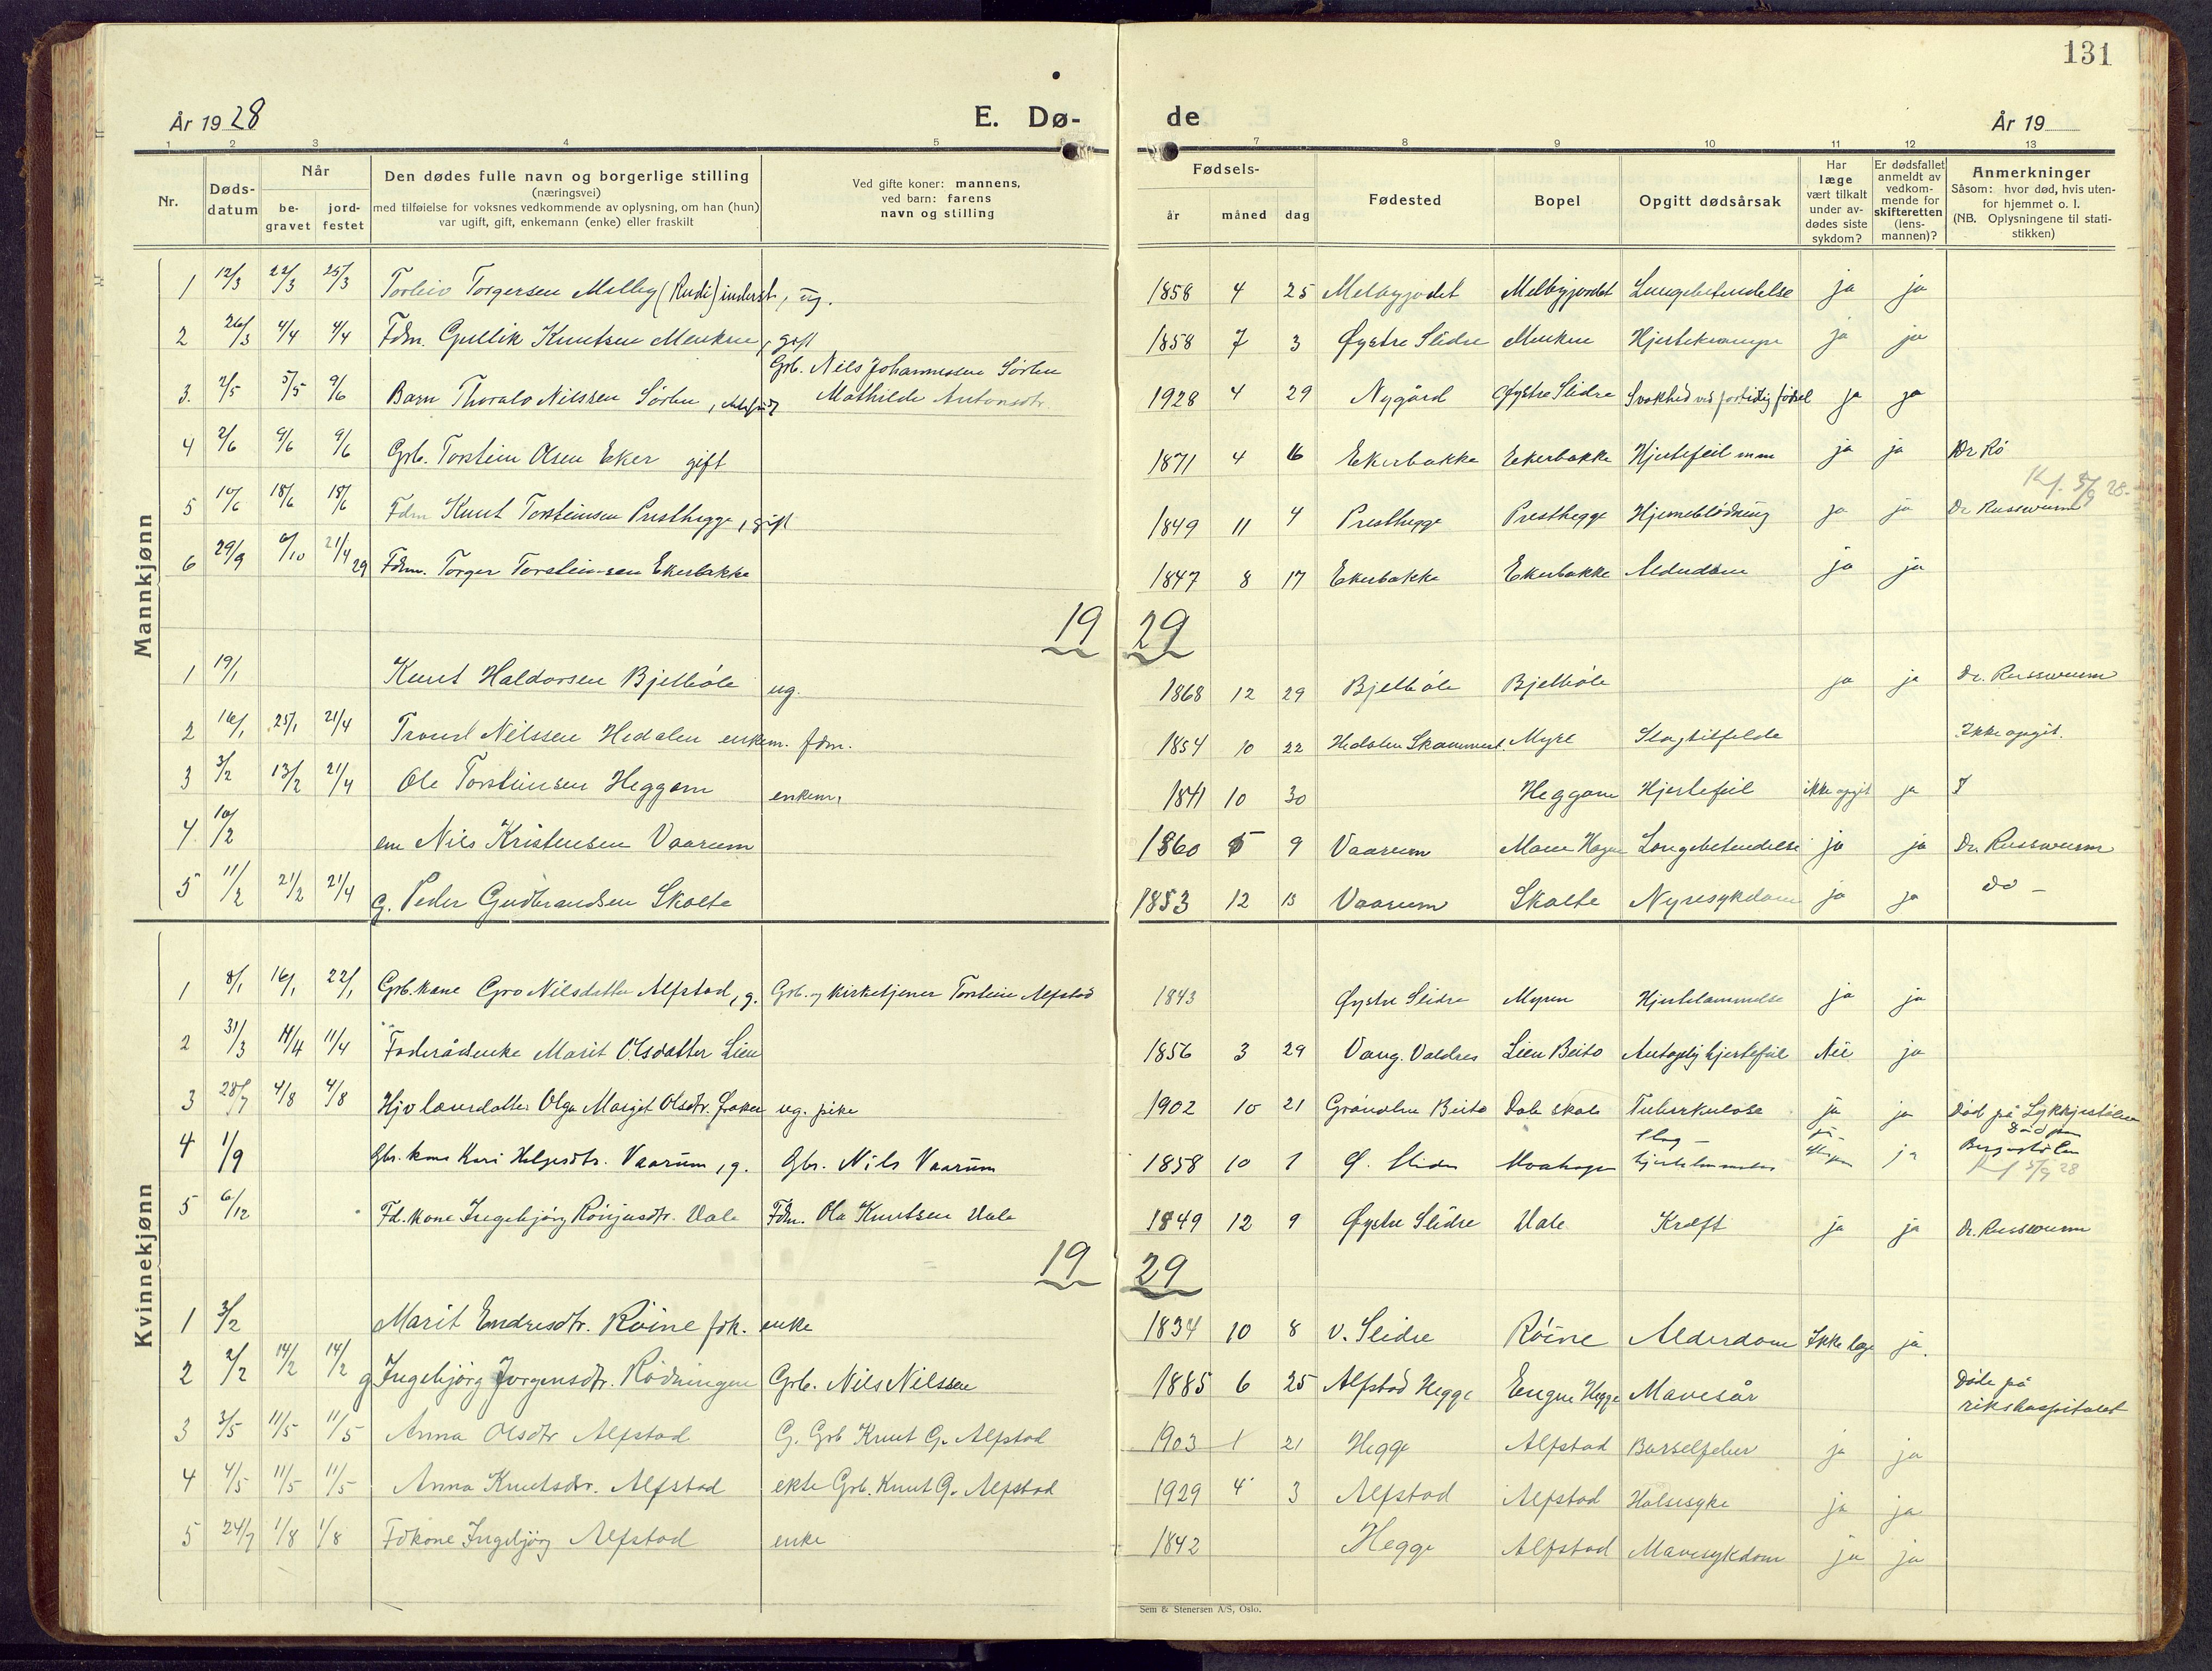 131
År 1928 E. Dø- de År 19
1 2 3 4 5 6 7 8 9 10 11 12 13
Nr. Døds-datum Når be-gravet jord-festet Den dødes fulle navn og borgerlige stilling (næringsvei) med tilføielse for voksnes vedkommende av oplysning, om han (hun) var ugift, gift, enkemann (enke) eller fraskilt Ved gifte koner: mannens, ved barn: farens navn og stilling Fødsels- år måned dag Fødested Bopel Opgitt dødsårsak Har læge vært tilkalt under av-dødes siste sykdom? Er dødsfallet anmeldt av vedkom-mende for skifteretten (lens-mannen)? Anmerkninger Såsom: hvor død, hvis uten-for hjemmet o. l. (NB. Oplysningene til stati-stikken)
Mannkjønn
1 12/3 22/3 25/3 Torleiv Torgersen Melby (Rudi) inderst, ug. 1858 4 25 Melbyjodet Melbyjordet Lungebetendelse ja ja
2 26/3 4/4 4/4 Fdm. Gullik Knutsen , gift 1858 7 3 Øystre Slidre Hjertekrampe ja ja
Grb. Nils Johannessen Sørlien
3. 2/5 5/5 9/6 Barn Thoralv Nilssen Sørlien, Mathilde Antonsdtr. 1928 4 29 Nygård Øystre Slidre Svakhed ved fortidig fødsel ja ja
4 2/6 9/6 9/6 Grb. Torstein Olsen Eker gift 1871 4 16 Ekerbakke Ekerbakke Hjertefeil mm ja ja Dr Rö
5 10/6 18/6 18/6 Fdm Knut Torsteinsen Presthegge, gift 1849 11 4 Presthegge Presthegge Hjerneblödning ja ja Dr Russwurm
6 29/9 6/10 21/4 29 Fdm. Torger Torsteinsen Ekerbakke 1847 8 17 Ekerbakke Ekerbakke Alderdom ja ja
19 29
1 19/1 Knut Haldorsen Bjelböle ug. 1868 12 29 Bjelböle Bjelböle ja ja Dr. Russwurm
2 16/1 25/1 21/4 Trond Nilssen Hedalen enkem. fdm. 1854 10 22 Hedalen Myre Slagtilfelde Ikke opgit.
3 3/2 13/2 21/4 Ole Torsteinsen Heggom enkem. 1841 10 30 Heggom Hjertefeil ikke opgit ja
4 10/2 em Nils Kristensen Vaarum 1860 5 9 Vaarum Hagen Lungebetendelse ja ja Dr. Russwurm
5 11/2 21/2 21/4 g. Peder Gudbrandsen Skolte 1853 12 13 Vaarum Skolte Nyresykdom ja ja do -
Kvinnekjønn
1 8/1 16/1 22/1 Grb. kone Gro Nilsdatter Alfstad, g. Grb. og kirketjener Torstein Alfstad 1843 Øystre Slidre Myren Hjertelammelse ja ja
2 31/3 11/4 11/4 Foderådenke Marit Olsdatter Lien 1856 3 29 Vang. Valdres Lien Beito Antagelig hjertefeil Nei ja
3 28/7 4/8 4/8 Olga Marget Olsdtr. ug. pike 1902 10 21 Grönolen Beito Dale skole Tuberkulose ja ja Död på
4 1/9 Gbr. kone Kari Helgesdtr. Vaarum, g. Gbr. Nils Vaarum 1858 10 1 Ø. Slidre Slag - hjertelammelse ja
Kf 5/9 28
5 6/12 Fd. kone Ingebjörg Rönjusdtr. Vale Fdm. Ola Knutsen Vale 1849 12 9 Øystre Slidre Vale Kræft ja ja Dr. Russwurm
19 29
1 3/2 Marit Endresdtr. Röine fdk. enke 1834 10 8 V. Slidre Röine Alderdom Ikke læge ja.
2 2/2 14/2 14/2 g Ingebjörg Jorgensdtr. Rödningen Grb. Nils Nilssen 1885 6 25 Alfstad Hegge Engene Hegge Mavesår Döde på rikshospitalet
3 3/5 11/5 11/5 Anna Olsdtr Alfstad G. Grb Knut G. Alfstad 1903 1 21 Hegge Alfstad Barselfeber ja ja
4 4/5 11/5 11/5 Anna Knutsdtr. Alfstad ekte Grb. Knut G. Alfstad 1929 4 3 Alfstad Alfstad Halsesyke ja ja
5 24/7 1/8 1/8 Fdkone Ingebjörg Alfstad enke 1842 Hegge Alfstad Mavesykdom ja ja
Sem & Stenersen A/S, Oslo.